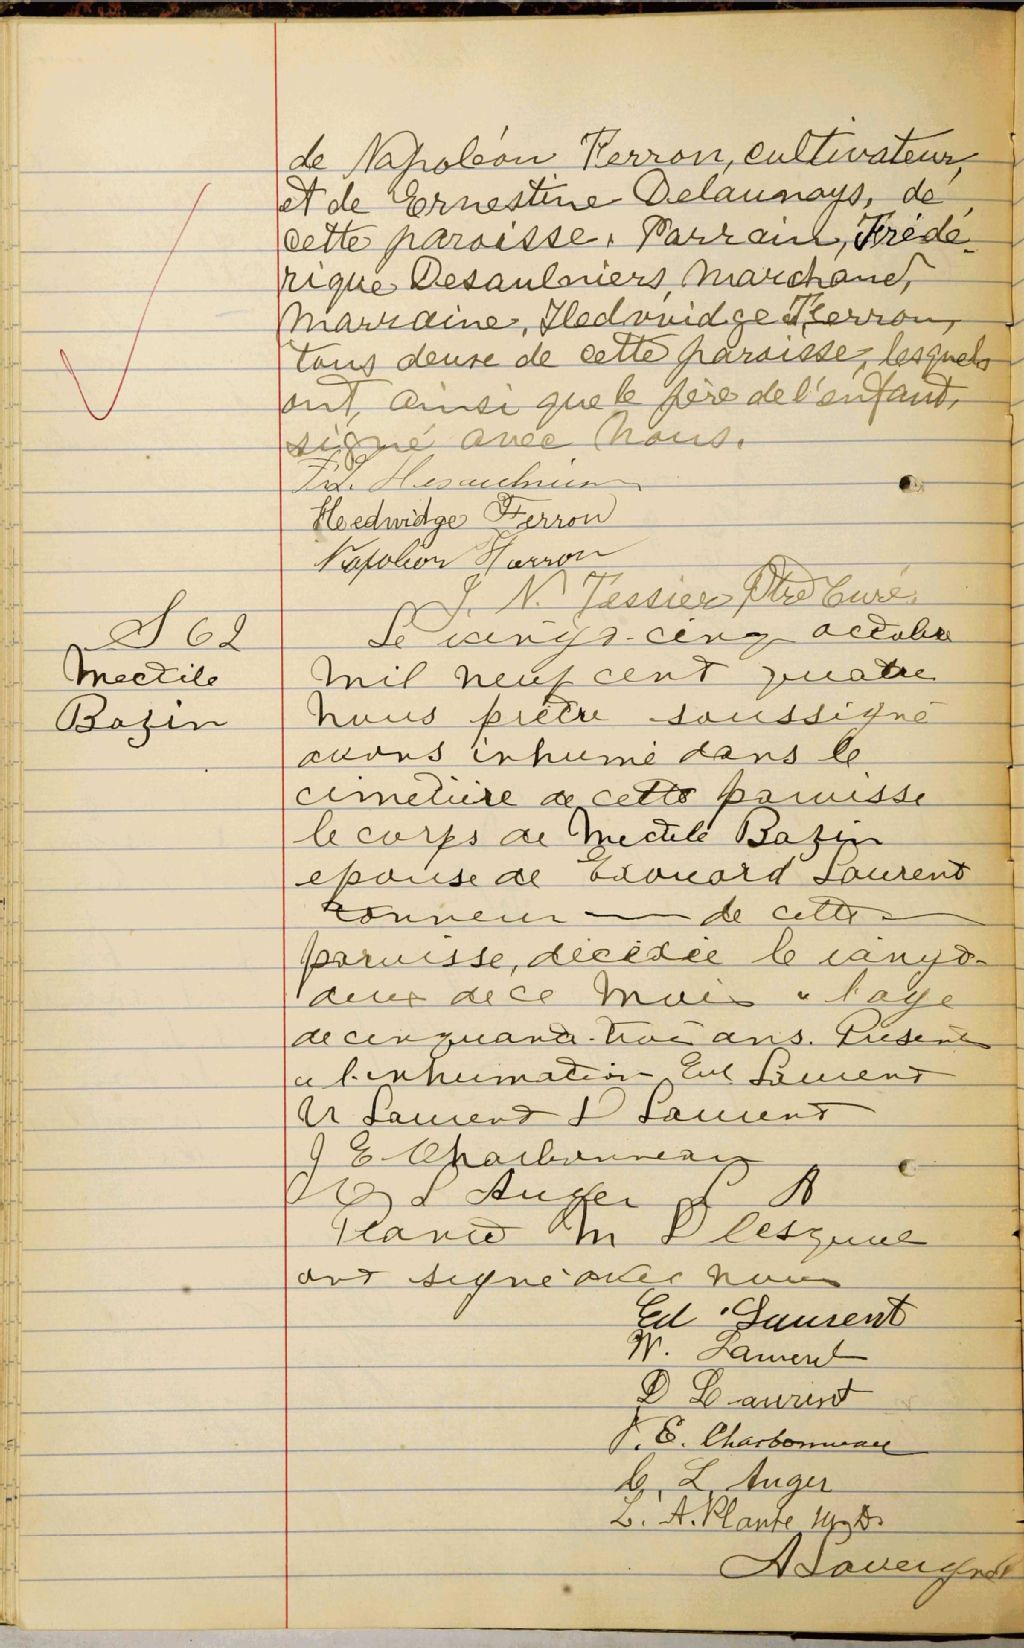 de Napoléon Ferron, cultivateur,
et de Ernestine Delaunays, de
cette paroisse. Parrain, Frédé-
rique Desaulniers, marchand,
marraine, Hedwidge Ferron,
tous deux de cette paroisse, lesquels
ont, ainsi que le père de l'enfant,
signé avec nous.
Fd. Desaulniers
Hedwidge Ferron
Napoléon Ferron
J. N. Tessier Ptre Curé.
S 62
Mectile
Bazin
Le vingt-cinq octobre
mil neuf cent quatre
nous prêtre soussigné
avons inhumé dans le
cimetière de cette paroisse
le corps de Mectile Bazin
epouse de Edouard Laurent
tonneur de cette
paroisse, décédée le vingt-
deux de ce mois a l'age
de cinquante-trois ans. Présents
a l'inhumation Ed Laurent
W Laurent D Laurent
J E Charbonneau
C L Auger L A
Plante M D lesquels
ont signé avec nous
Ed Laurent
W. Laurent
D Laurent
J. E. Charbonneau
C. L. Auger
L. A. Plante M.D.
A Lavergne